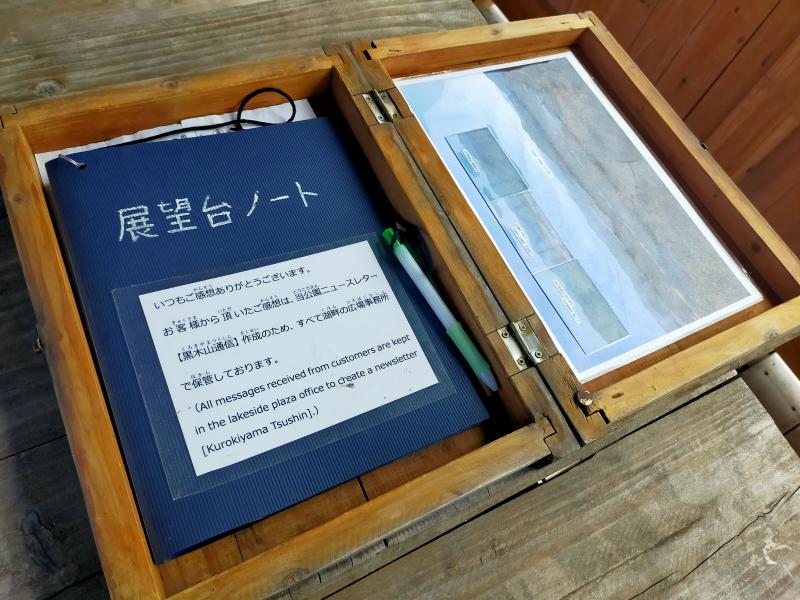 展望台ノート
いつもご感想ありがとうございます。
お客様から頂いたご感想は、当公園ニュースレター
【黒木山通信】作成のため、すべて湖畔の広場事務所
で保管しております。
(All messages received from customers are kept
in the lakeside plaza office to create a newsletter
[Kurokiyama Tsushin].)